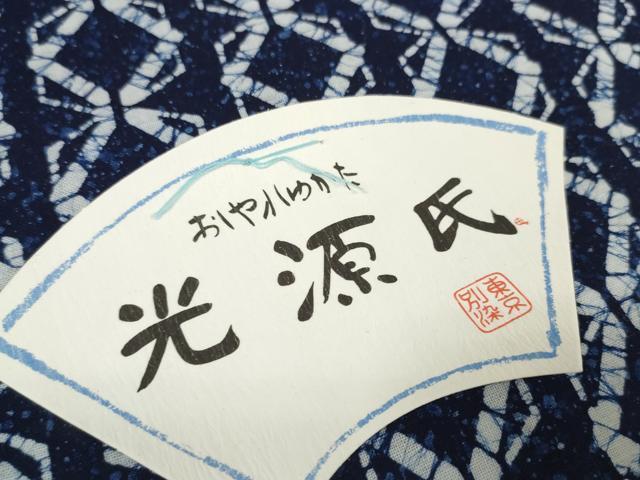 おしゃれゆかた
光源氏
東京
別染